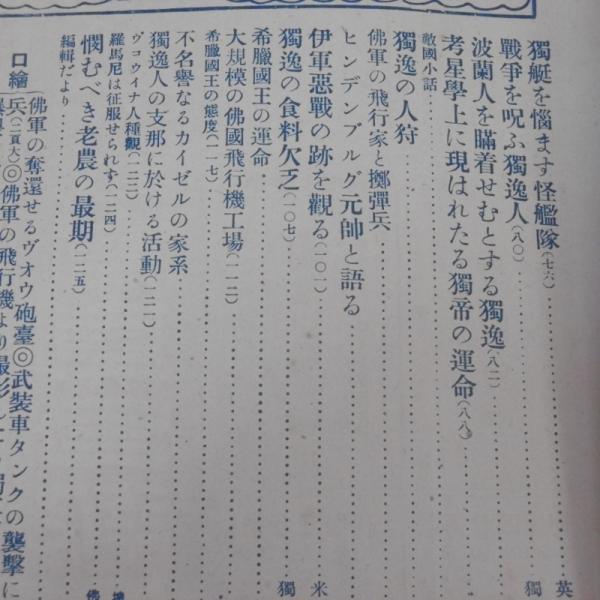 獨艇を惱ます怪艦隊(七六)
英
戰爭を呪ふ獨逸人(八〇)
獨
波蘭人を瞞着せむとする獨逸(八二)
考星學上に現はれたる獨帝の運命(八八)
敵國小話
獨逸の人狩
佛軍の飛行家と擲彈兵
ヒンデンブルグ元帥と語る
米
伊軍惡戰の跡を觀る(一〇一)
獨逸の食料欠乏(一〇七)
獨
希臘國王の運命
大規模の佛國飛行機工場(一一二)
希臘國王の態度(一一七)
不名譽なるカイゼルの家系
獨逸人の支那に於ける活動(一二一)
ヴコウイナ人種觀(一二三)
羅馬尼は征服せられず(一二四)
憫むべき老農の最期(一二五)
編輯だより
口繪
佛軍の奪還せるヴォウ砲臺◎武裝車タンクの襲擊に
◎佛軍の飛行機より撮影